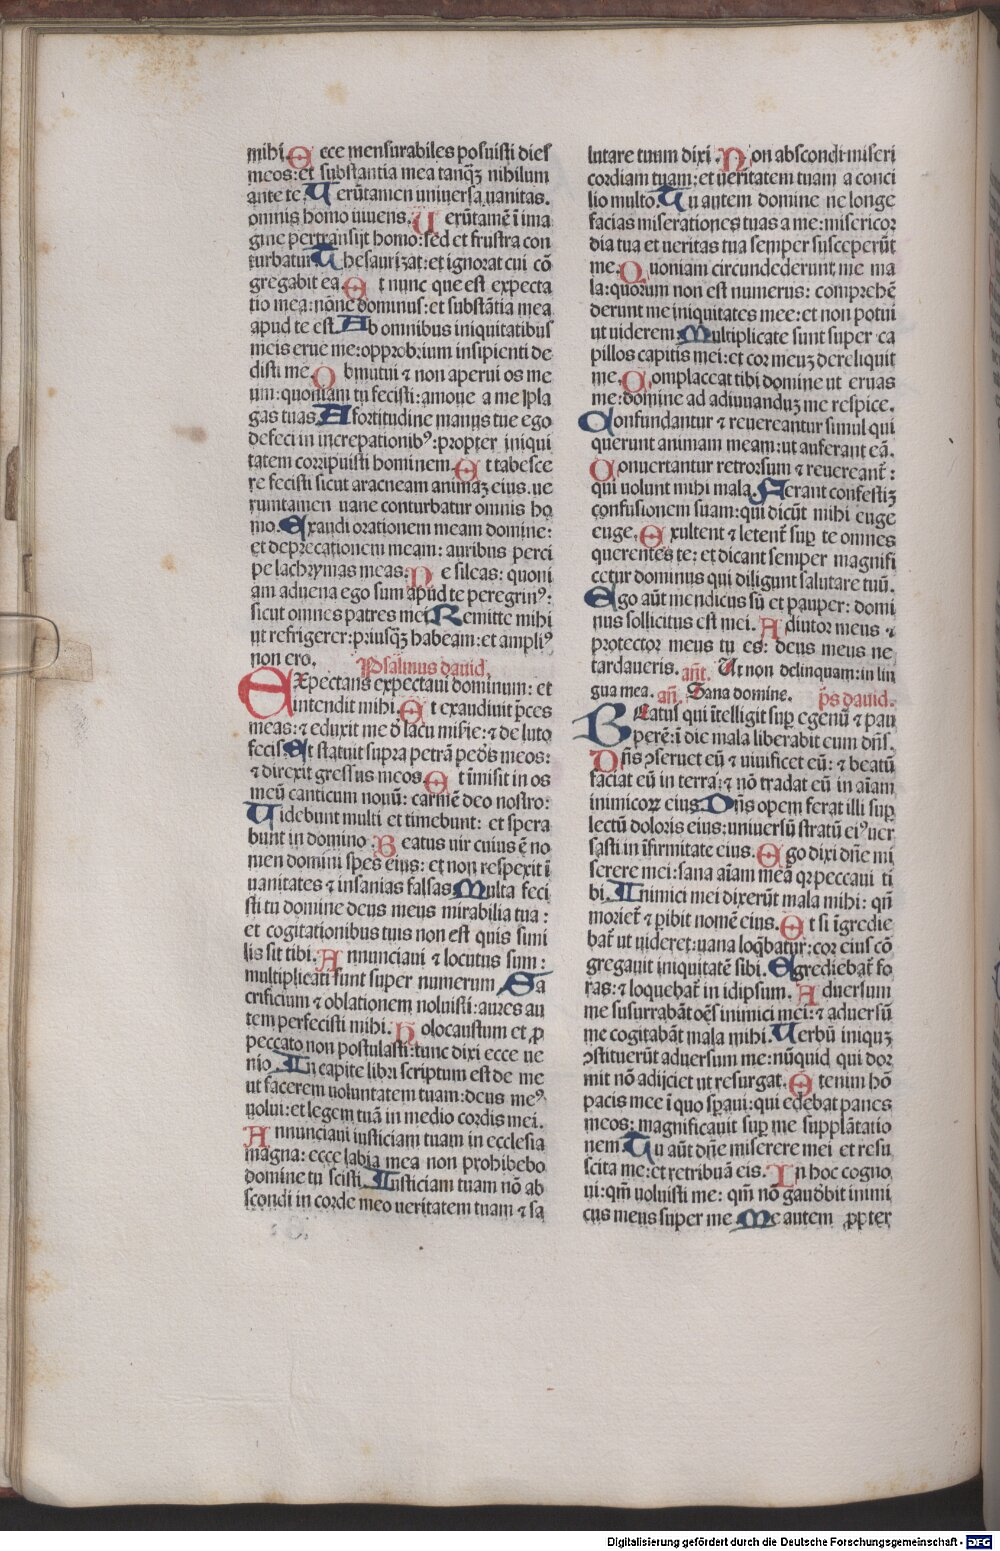 mihi. Ecce mensurabiles posuisti dies
meos: et substantia mea tanqȝ nihilum
ante te. Uerũtamen uniuersa uanitas.
omnis homo uiuens. Uerũtamẽ ĩ ima
gine pertransijt homo: sed et frustra con
turbatur. Thesaurizat: et ignorat cui cõ
gregabit ea. Et nunc que est expecta
tio mea: nõne dominus: et substãtia mea
apud te est. Ab omnibus iniquitatibus
meis erue me: opprobrium insipienti de
disti me. Obmutui ⁊ non aperui os me
um: quoniam tu fecisti: amoue a me pla
gas tuas. A fortitudine manus tue ego
defeci in increpationibꝰ: propter iniqui
tatem corripuisti hominem. Et tabesce
re fecisti sicut araneam animaȝ eius. ue
rumtamen uane conturbatur omnis ho
mo. Exaudi orationem meam domine:
et deprecationem meam: auribus perci
pe lachrymas meas. Ne sileas: quoni
am aduena ego sum apud te peregrinꝰ:
sicut omnes patres mei. Remitte mihi
ut refrigerer: priusqȝ habeam: et ampliꝰ
non ero. Psalmus dauid.
EXpectans expectaui dominum: et
intendit mihi. Et exaudiuit p̃ces
meas: ⁊ eduxit me d̓ lacu misẽie: ⁊ de luto
fecis. Et statuit supra petrã pedes meos:
⁊ direxit gressus meos. Et ĩmisit in os
meũ canticum nouũ: carmẽ deo nostro:
Uidebunt multi et timebunt: et spera
bunt in domino. Beatus uir cuius ẽ no
men domini spes eius: et non respexit ĩ
uanitates ⁊ insanias falsas. Multa feci
sti tu domine deus meus mirabilia tua:
et cogitationibus tuis non est quis simi
lis sit tibi. Annunciaui ⁊ locutus sum:
multiplicati sunt super numerum. Sa
crificium ⁊ oblationem noluisti: aures au
tem perfecisti mihi. Holocaustum et ꝓ
peccato non postulasti: tunc dixi ecce ue
nio. In capite libri scriptum est de me
ut facerem uoluntatem tuam: deus meꝰ
uolui: et legem tuã in medio cordis mei.
Annunciaui iusticiam tuam in ecclesia
magna: ecce labia mea non prohibebo
domine tu scisti. Iusticiam tuam nõ ab
scondi in corde meo ueritatem tuam ⁊ sa
lutare tuum dixi. Non abscondi miseri
cordiam tuam: et ueritatem tuam a conci
lio multo. Tu autem domine ne longe
facias miserationes tuas a me: misericor
dia tua et ueritas tua semper susceperũt
me. Quoniam circumdederunt me ma
la: quorum non est numerus: comprehẽ
derunt me iniquitates mee: et non potui
ut uiderem. Multiplicate sunt super ca
pillos capitis mei: et cor meuȝ dereliquit
me. Complaceat tibi domine ut eruas
me: domine ad adiuuanduȝ me respice.
Confundantur ⁊ reuereantur simul qui
querunt animam meam: ut auferant eã.
Conuertantur retrorsum ⁊ reuereant᷑:
qui uolunt mihi mala. Ferant confestiȝ
confusionem suam: qui dicũt mihi euge
euge. Exultent ⁊ letent᷑ sup̱ te omnes
querentes te: et dicant semper magnifi
cetur dominus qui diligunt salutare tuũ.
Ego aũt mendicus sũ et pauper: domi
nus sollicitus est mei. Adiutor meus ⁊
protector meus tu es: deus meus ne
tardaueris. añt. Ut non delinquam: in lin
gua mea. añ. Sana domine. p̃s dauid.
BEatus qui ĩtelligit sup̱ egenũ ⁊ pau
perẽ: ĩ die mala liberabit eum dñs.
Dñs ꝯseruet eũ ⁊ uiuificet eũ: ⁊ beatũ
faciat eũ in terra: ⁊ nõ tradat eũ in aĩam
inimicoꝝ eius. Dñs opem ferat illi sup̱
lectũ doloris eius: uniuersũ stratũ eiꝰ uer
sasti in ĩfirmitate eius. Ego dixi dñe mi
serere mei: sana aĩam meã qꝛ peccaui ti
bi. Inimici mei dixerũt mala mihi: qñ
moriet᷑ ⁊ ꝑibit nomẽ eius. Et si ĩgredie
bat᷑ ut uideret: uana loq̃batur: cor eius cõ
gregauit iniquitatẽ sibi. Egrediebat᷑ fo
ras: ⁊ loquebat᷑ in idipsum. Aduersum
me susurrabãt oẽs inimici mei: ⁊ aduersũ
me cogitabãt mala mihi. Uerbũ iniquȝ
ꝯstituerũt aduersum me: nũquid qui dor
mit nõ adijciet ut resurgat. Etenim hõ
pacis mee ĩ quo sp̱aui: qui edebat panes
meos: magnificauit sup̱ me supplãtatio
nem. Tu aũt dñe miserere mei et resu
scita me: et retribuã eis. In hoc cogno
ui: qm̃ uoluisti me: qm̃ nõ gaudebit inimi
cus meus super me. Me autem ꝓpter
Digitalisierung gefördert durch die Deutsche Forschungsgemeinschaft - DFG